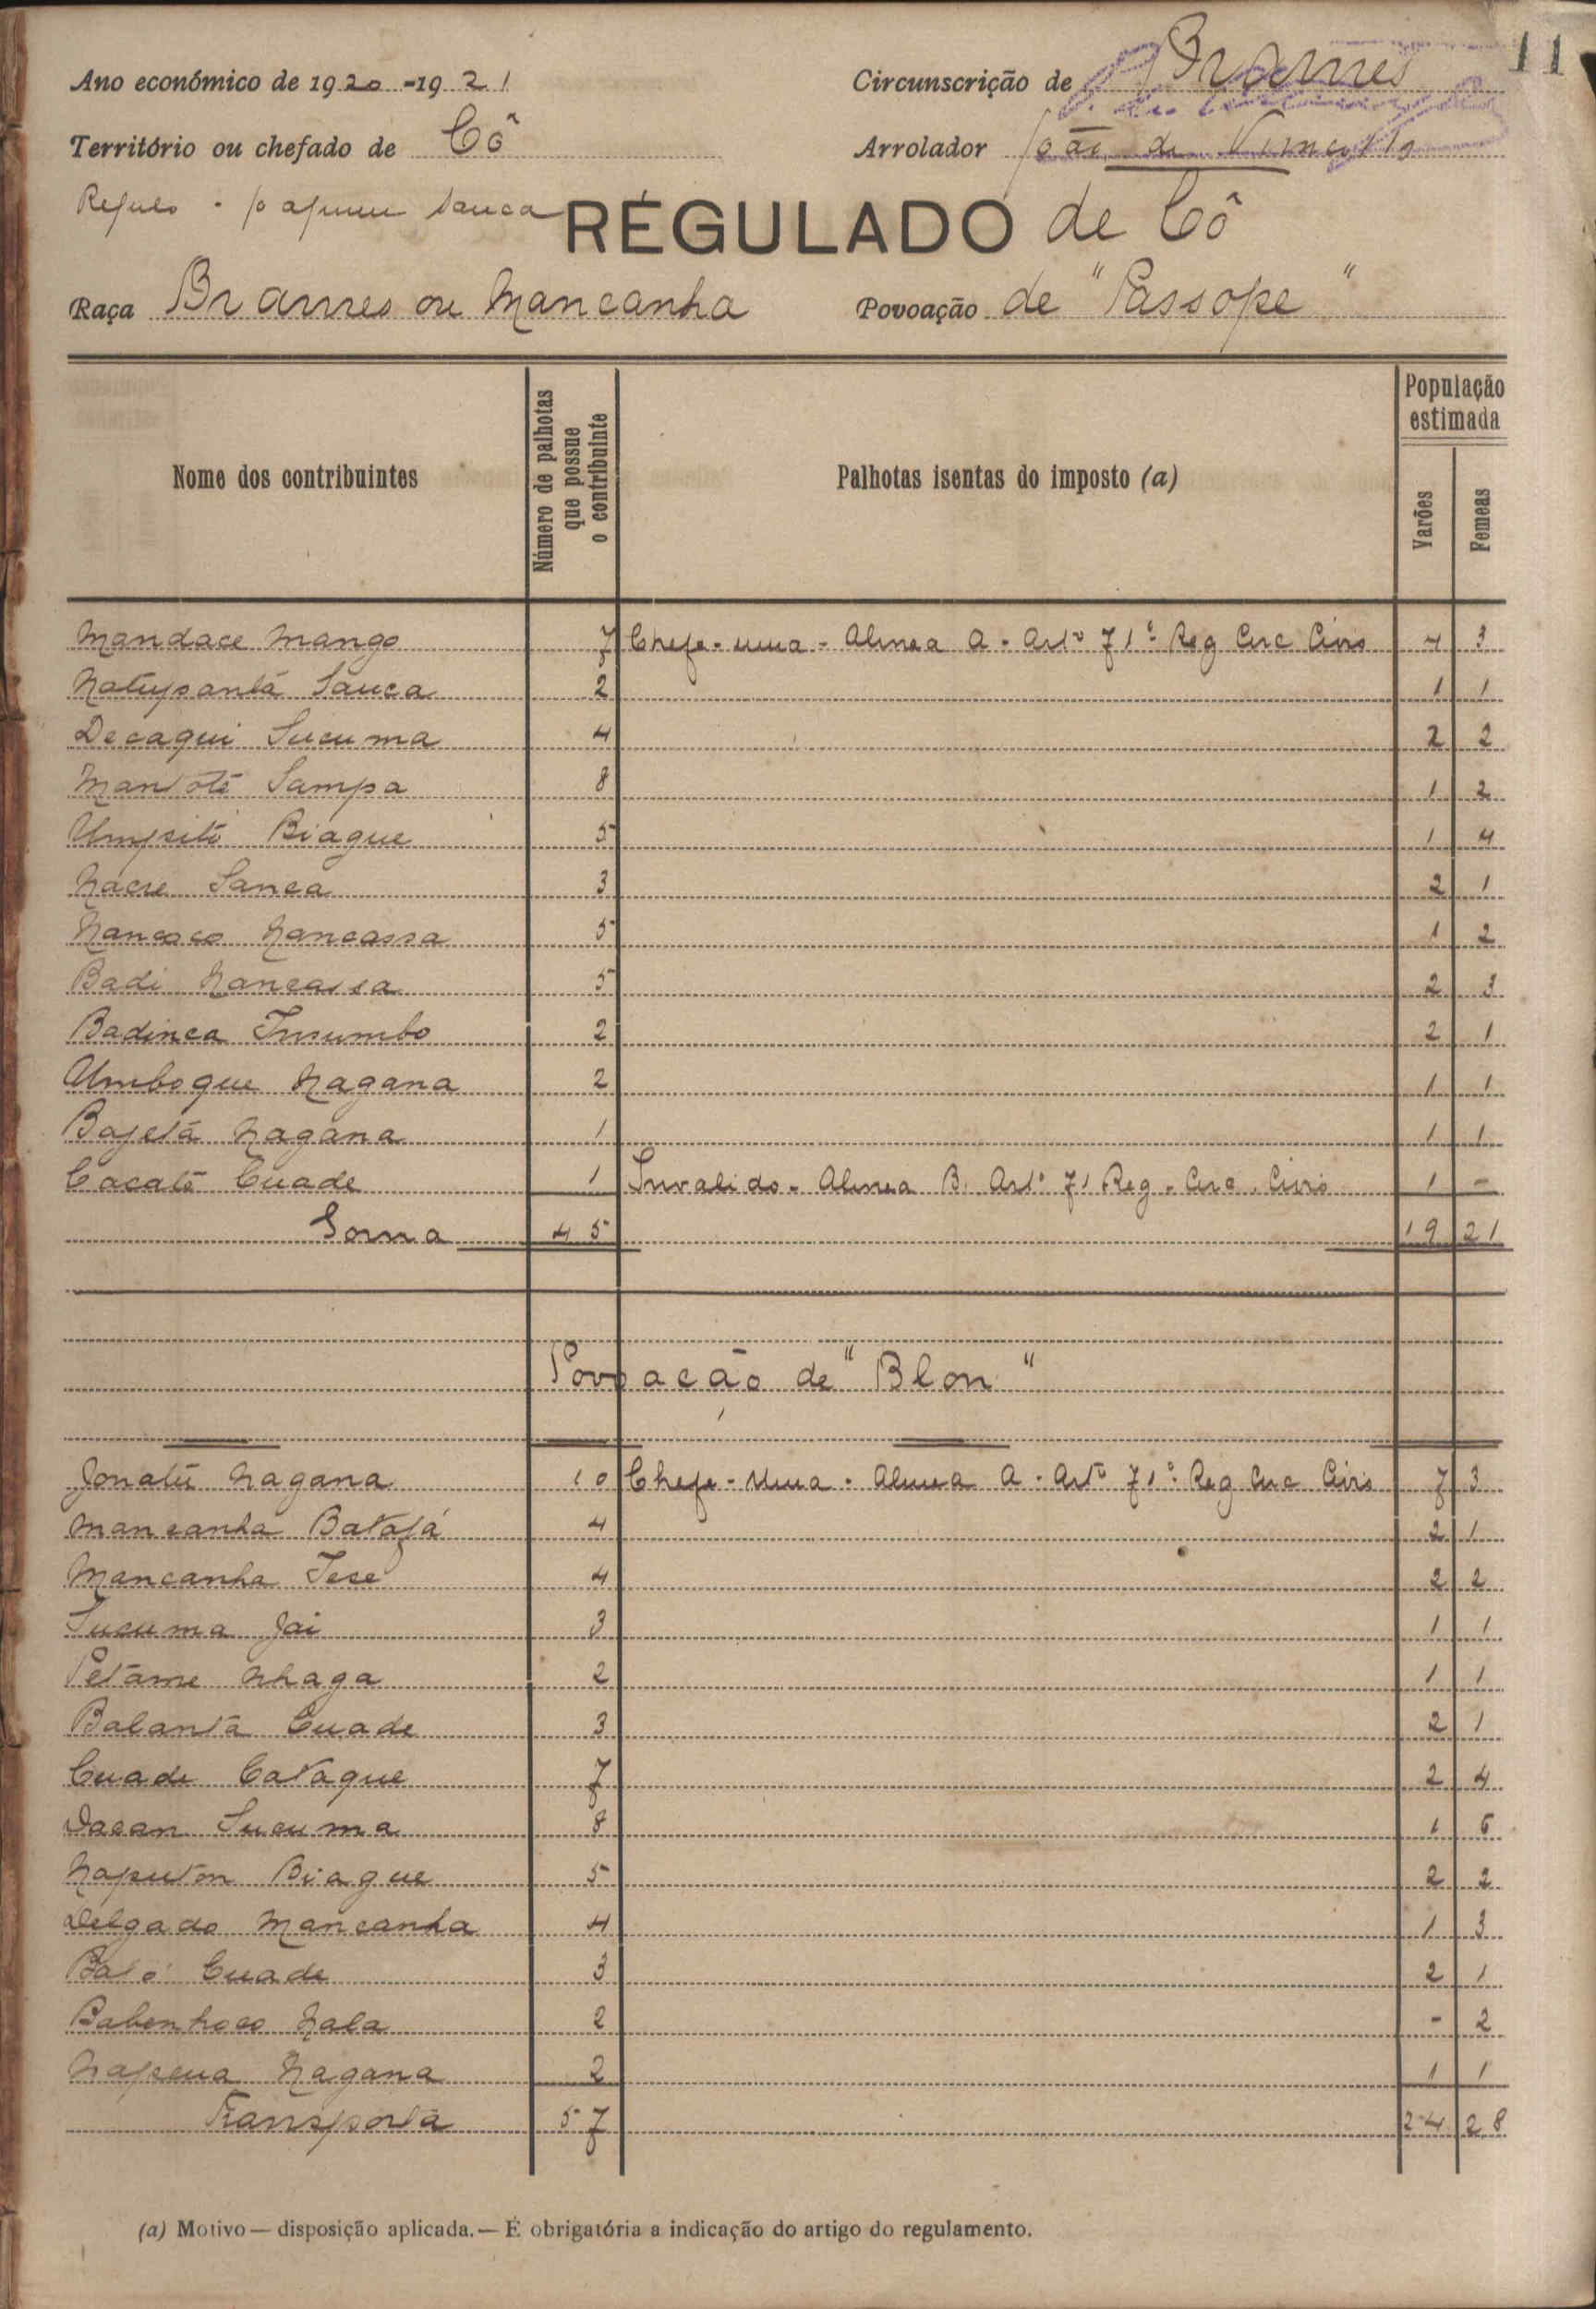 11
Ano económico de 1920-1921 Circunscrição de Brames
Território ou chefado de Cô Arrolador João de
Regulo - Sanca
RÉGULADO de Cô
Raça Brames ou Mancanha Povoação de "Passope"
Nome dos contribuintes Número de palhotas que possue o contribuinte Palhotas isentas do imposto (a) População estimada Varões Femeas
Mandace Mango 7 Chefe - uma - Alinea A - Artº 71º - Reg Circ Civis 4 3
Natupantá Sanca 2 1 1
Decaqui Sucuma 4 2 2
Mantóte Sampa 8 1 2
Umpsité Biague 5 1 4
Nacre Sanca 3 2 1
Nancoco Nancassa 5 1 2
Badi Nancassa 5 2 3
Badinca Insumbo 2 2 1
Umboque Nagana 2 1 1
Bajetá Nagana 1 1 1
Cacató Cuade 1 Invalido - Alinea B. Artº 71 Reg - Circ. Civis 1 -
Soma 45 19 21
Povoacão de "Blon"
Jonatú Nagana 10 Chefe - Uma - Alinea A - Artº 71º - Reg Circ Civis 7 3
Mancanha Batajá 4 2 1
Mancanha Tese 4 2 2
Sucuma Jai 3 1 1
Petame Nhaga 2 1 1
Balanta Cuade 3 2 1
Cuade Cataque 7 2 4
Dacan Sucuma 8 1 6
Naputon Biague 5 2 2
Delgado Mancanha 4 1 3
Cuade 3 2 1
Babonhoco Nala 2 - 2
Napena Nagana 2 1 1
Transporta 57 24 28
(a) Motivo — disposição aplicada. — É obrigatória a indicação do artigo do regulamento.